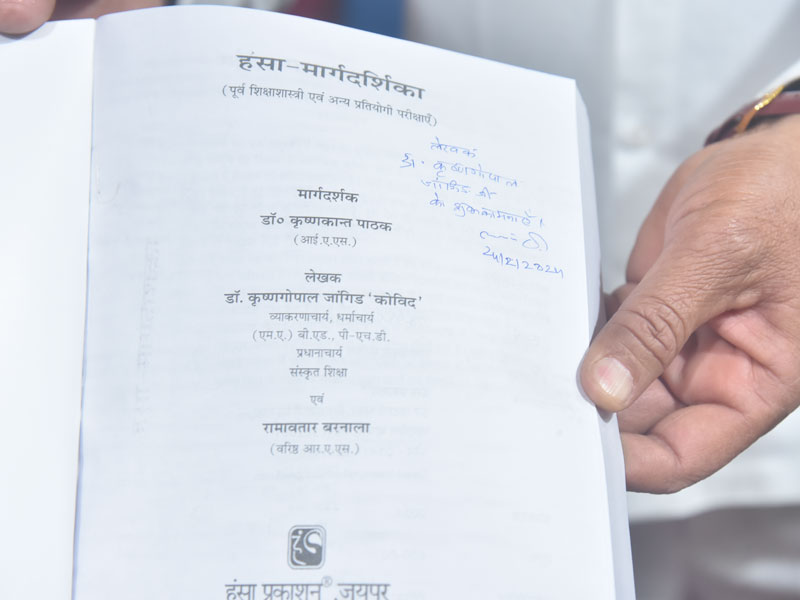 हंसा-मार्गदर्शिका
(पूर्व शिक्षाशास्त्री एवं अन्य प्रतियोगी परीक्षाएँ)
लेखक
डॉ. कृष्णगोपाल
जांगिड जी
को शुभकामनाएँ।
मार्गदर्शक
डॉ० कृष्णकान्त पाठक
(आई.ए.एस.)
लेखक
डॉ. कृष्णगोपाल जांगिड 'कोविद'
व्याकरणाचार्य, धर्माचार्य
(एम.ए.) बी.एड., पी-एच.डी.
प्रधानाचार्य
संस्कृत शिक्षा
एवं
रामावतार बरनाला
(वरिष्ठ आर.ए.एस.)
हंसा प्रकाशन® जयपुर